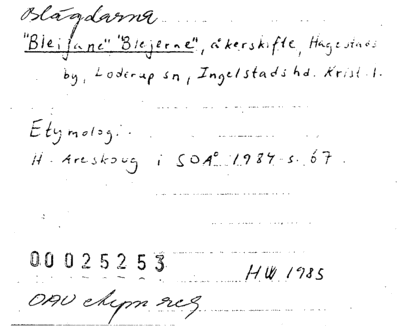 Blägdarna
"Bleijane" "Blejerne", åkerskifte, Hagestads
by, Löderup sn, Ingelstads hd. Krist. l.
Etymologi.
H. Areskoug i SOÅ 1984 s. 67.
00025253
HW 1985
OAU